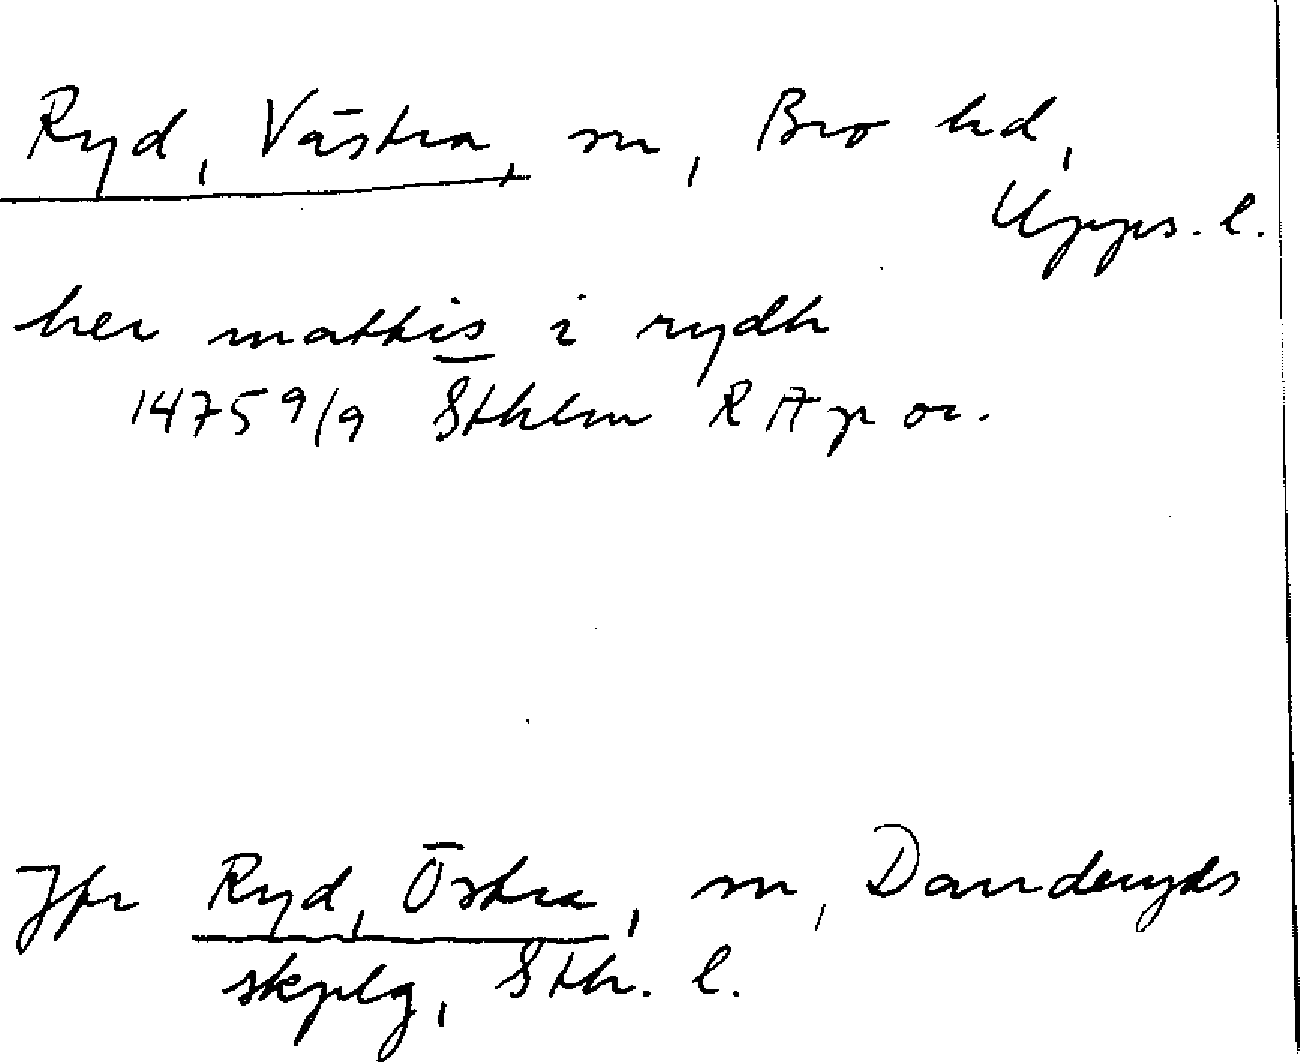 Ryd, Västra, sn, Bro hd,
Upps. l.
her mattis i rydh
1475 9/9 Sthlm RAp or.
Jfr Ryd, Östra, sn, Danderyds
skplg, Sth. l.